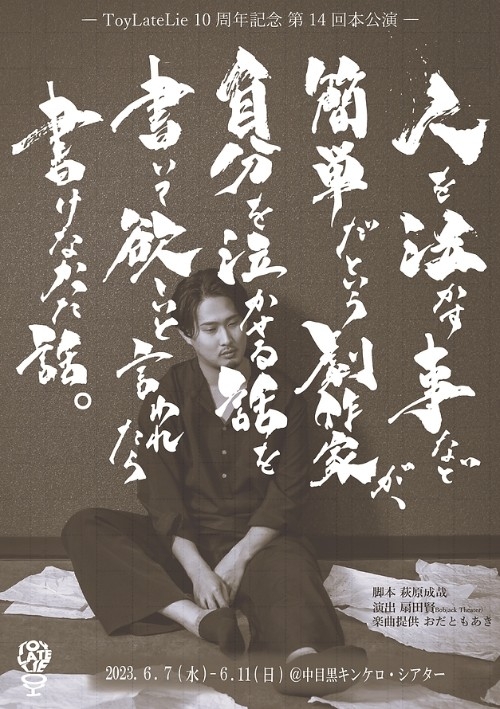 — ToyLateLie 10周年記念 第14回本公演 —
人を泣かす事など
簡単だという劇作家が、
自分を泣かせる話を
書いて欲しいと言われたら
書けなかった話。
脚本 萩原成哉
演出 扇田賢(Bobjack Theater)
楽曲提供 おだともあき
TOY
LATE
LIE
2023. 6. 7 (水) - 6.11(日) @中目黒キンケロ・シアター